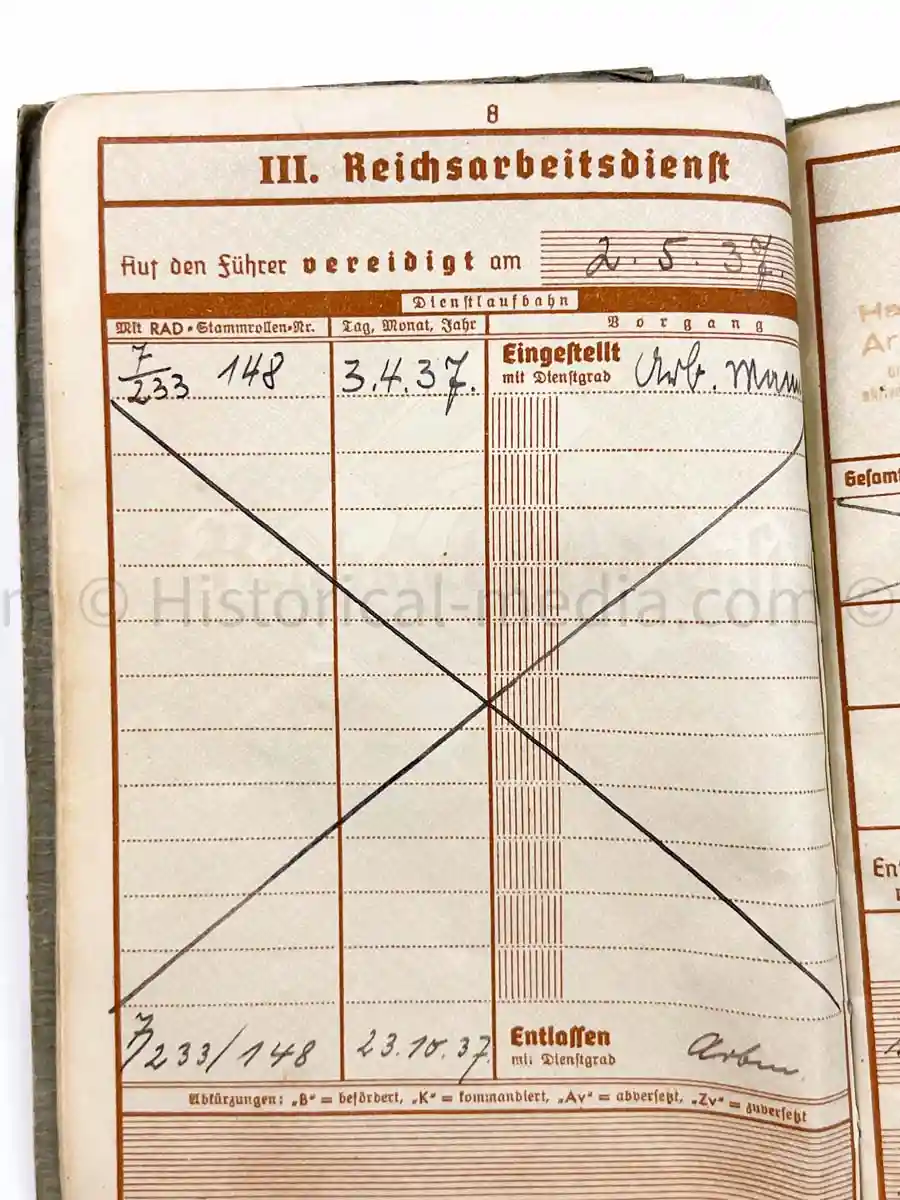 8
III. Reichsarbeitsdienst
Auf den Führer vereidigt am 2. 5. 37.
Dienstlaufbahn
Mit RAD-Stammrollen-Nr. Tag, Monat, Jahr Vorgang
7/233 148 3.4.37. Eingestellt mit Dienstgrad Arb. Mann
© Historical-media.com ©
7/233/148 23.10.37. Entlassen mit Dienstgrad Arbm.
Abkürzungen: „B“ = befördert, „K“ = kommandiert, „Av“ = abversetzt, „Zv“ = zuversetzt
Gesamt